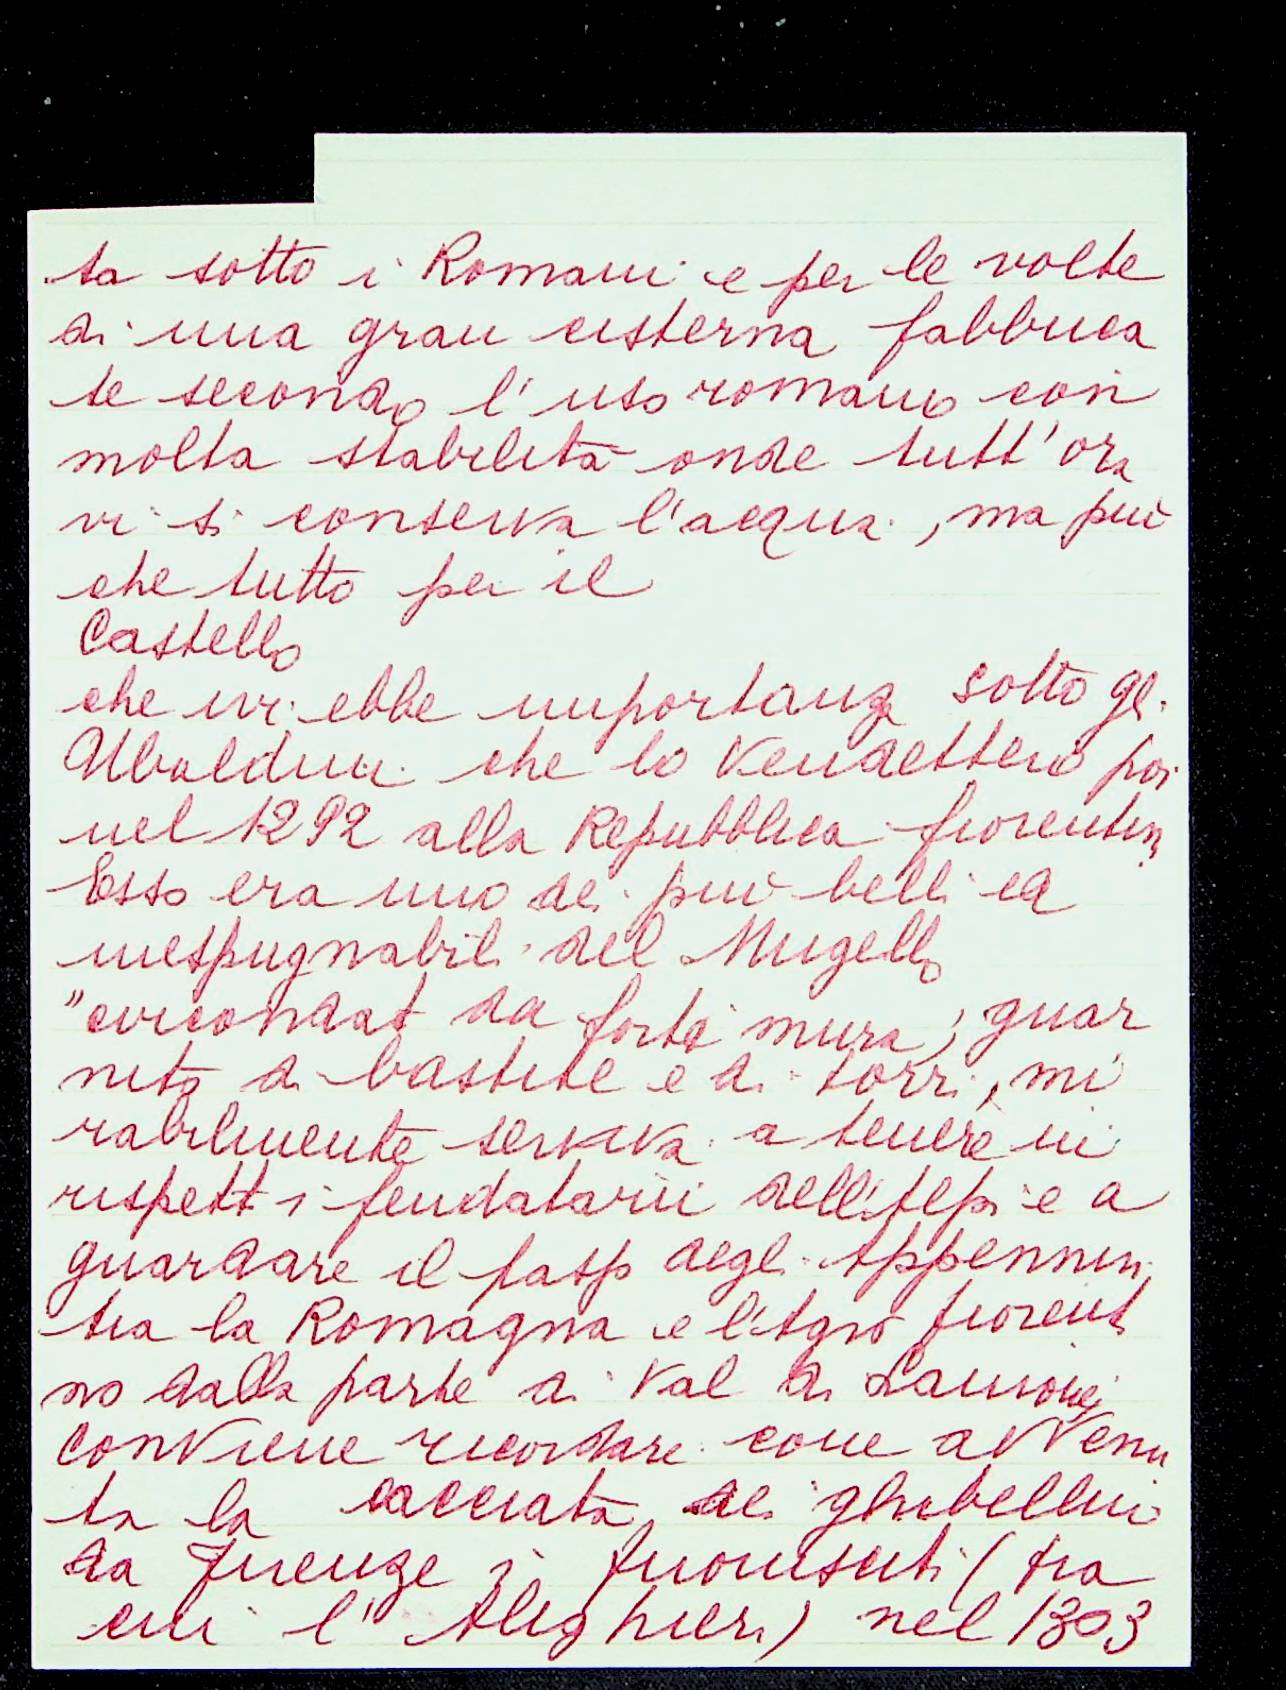 ta sotto i Romani e per le volte
di una gran cisterna fabbrica
te secondo l'uso romano con
molta stabilità onde tutt'ora
vi si conserva l'acqua, ma più
che tutto per il
Castello
che ivi ebbe importanza sotto gli
Ubaldini che lo vendettero poi
nel 1292 alla Repubblica fiorentina
Esso era uno dei più belli ed
inespugnabili del Mugello
"circondat da forti mura, guar
nito di bastite e di torri, mi
rabilmente serviva a tenere in
rispetto i feudatarii dell'Alpi e a
guardare il passo degli Appennini
tra la Romagna e l'Agro fiorenti
no dalla parte di Val di Lamone
Conviene ricordare come avvenu
ta la cacciata dei ghibellini
da Firenze i fuoriusciti (tra
cui l'Alighieri) nel 1303